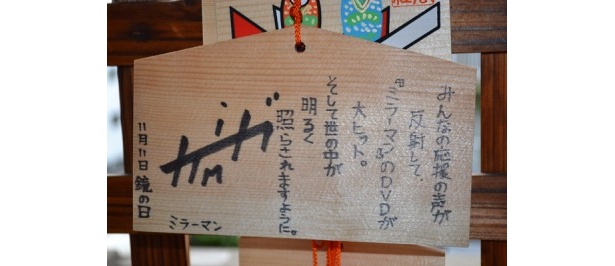 みんなの応援の声が
反射して、
『ミラーマン』のDVDが
大ヒット。
そして世の中が
明るく
照らされますように。
11月11日 鏡の日
ミラーマン